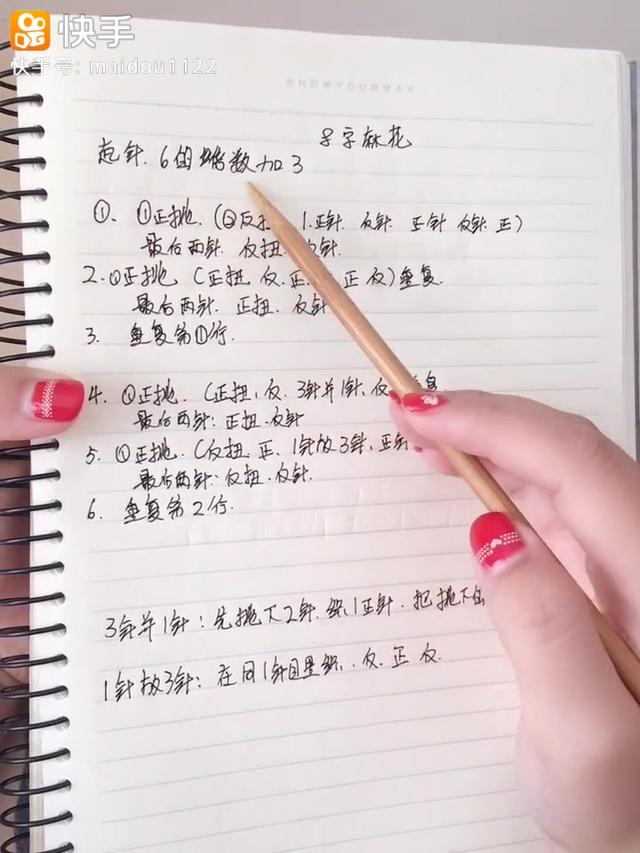 快手
快手号: maidou1122
SHOWYOURWAY
8字麻花
起针. 6的倍数加3
①、①正挑. (②反扭 1.正针. 反针. 正针 反针. 正)
最后两针. 反扭 反针.
2. ①正挑 (正扭. 反. 正. 正 反) 重复.
最后两针. 正扭. 反针
3. 重复第①行.
4. ①正挑. (正扭, 反. 3针并1针, 反
最后两针: 正扭. 反针
5. ①正挑. (反扭. 正. 1针放3针. 正针
最后两针: 反扭. 反针.
6. 重复第2行.
3针并1针: 先挑下2针. 织1正针. 把挑下
1针放3针: 在同1针目里织. 反. 正 反.